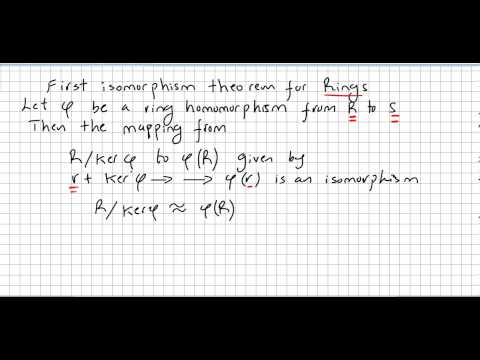 First isomorphism theorem for Rings
Let φ be a ring homomorphism from R to S
Then the mapping from
R/kerφ to φ(R) given by
r + kerφ → → φ(r) is an isomorphism
R/kerφ ≈ φ(R)